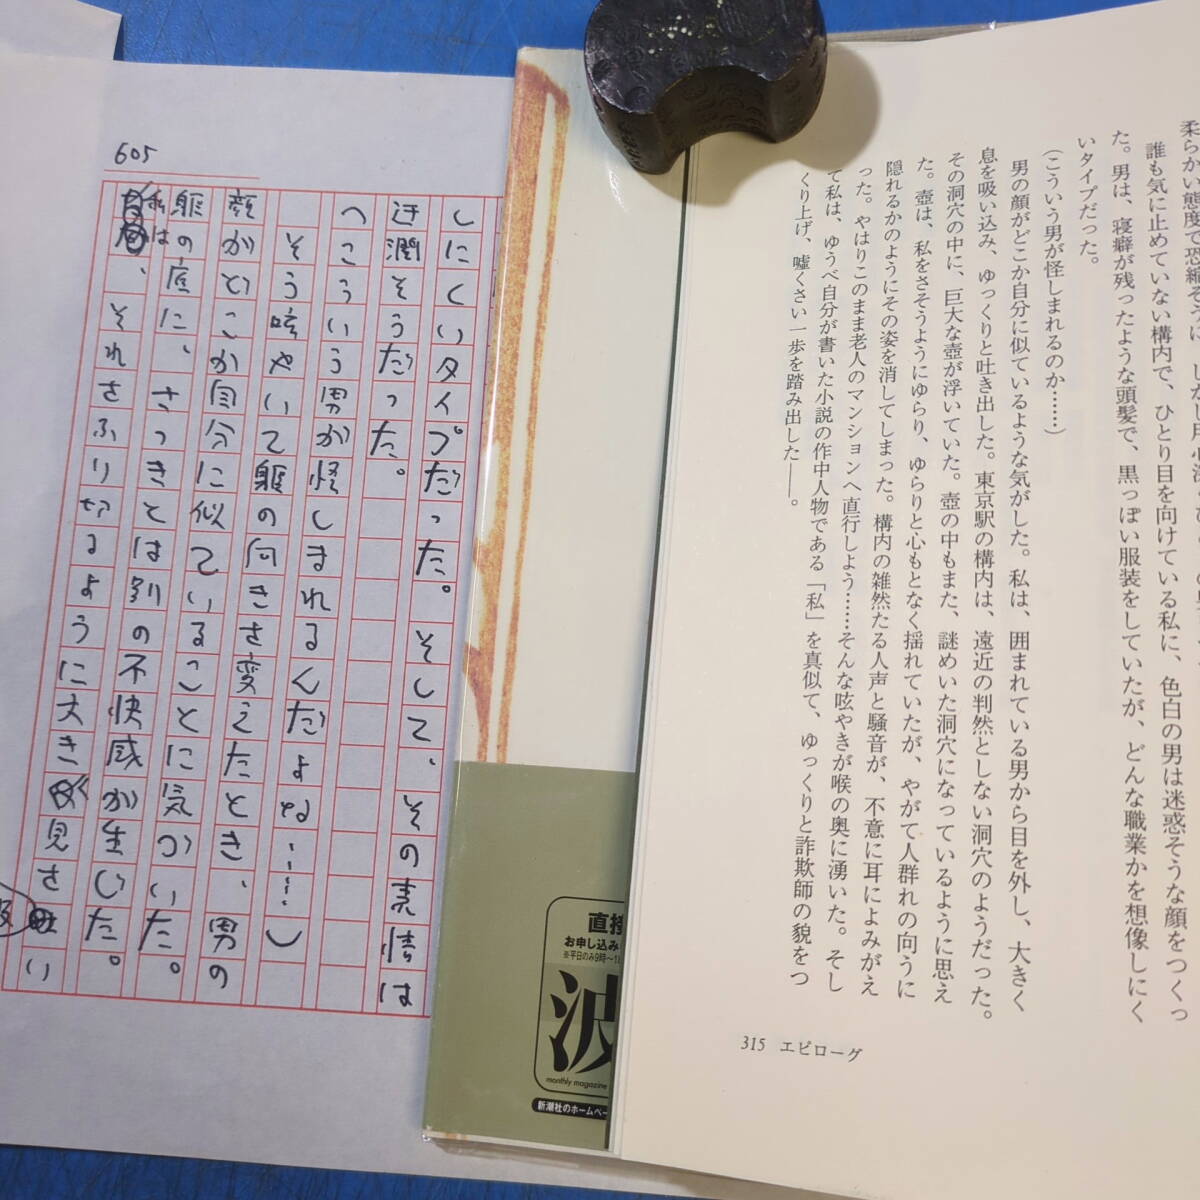 605
しにくいタイプだった。そして、その表情は
迂潤そうだった。
(こういう男が怪しまれるんだよね……)
そう呟やいて躯の向きを変えたとき、男の
顔がどこか自分に似ていることに気づいた。
躯の底に、さっきとは別の不快感が生じた。
私は、それをふり切るように大きく見さ
り
直接
お申し込み
※平日のみ9時〜18
波
monthly magazine
新潮社のホームペー
柔らかい態度で恐縮そうに
誰も気に止めていない構内で、ひとり目を向けている私に、色白の男は迷惑そうな顔をつくっ
た。男は、寝癖が残ったような頭髪で、黒っぽい服装をしていたが、どんな職業かを想像しにく
いタイプだった。
(こういう男が怪しまれるのか……)
男の顔がどこか自分に似ているような気がした。私は、囲まれている男から目を外し、大きく
息を吸い込み、ゆっくりと吐き出した。東京駅の構内は、遠近の判然としない洞穴のようだった。
その洞穴の中に、巨大な壺が浮いていた。壺の中もまた、謎めいた洞穴になっているように思え
た。壺は、私をさそうようにゆらり、ゆらりと心もとなく揺れていたが、やがて人群れの向うに
隠れるかのようにその姿を消してしまった。構内の雑然たる人声と騒音が、不意に耳によみがえ
った。やはりこのまま老人のマンションへ直行しよう……そんな呟やきが喉の奥に湧いた。そし
て私は、ゆうべ自分が書いた小説の作中人物である「私」を真似て、ゆっくりと詐欺師の貌をつ
くり上げ、嘘くさい一歩を踏み出した――。
315 エピローグ